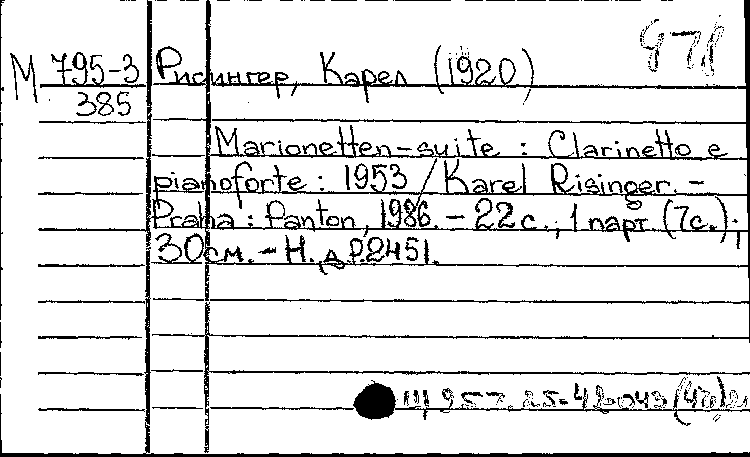 978
М 795-3 Рисингер, Карел (1920)
385
Marionetten-suite : Clarinetto e
pianoforte : 1953 / Karel Risinger. -
Praha : Panton, 1986. - 22 с., 1 парт. (7с.);
30 см. - Н. д. P.2451.